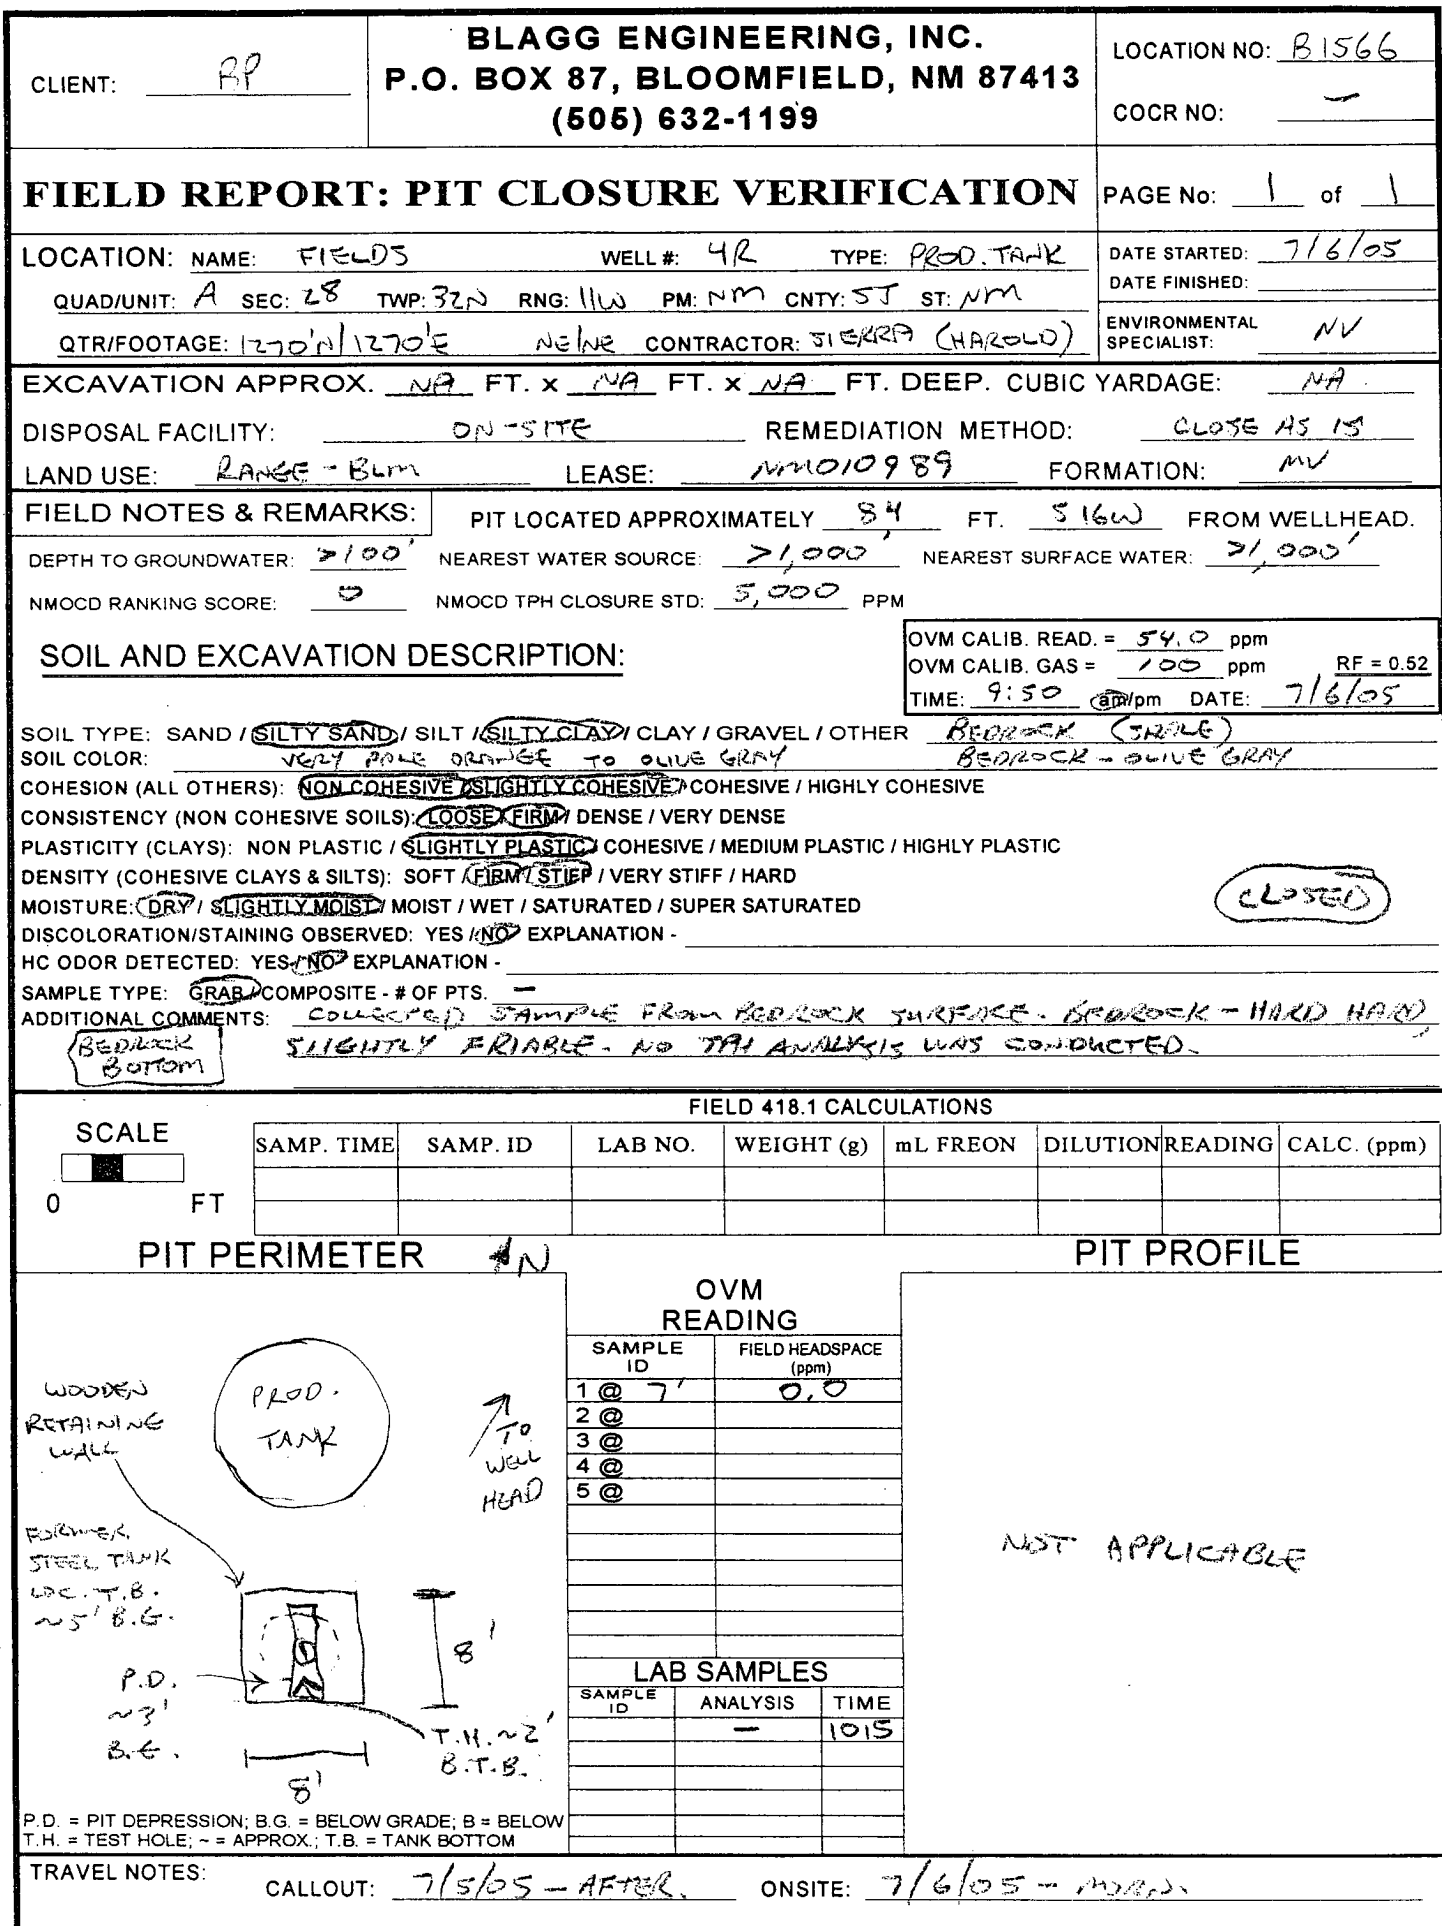 CLIENT: BP
BLAGG ENGINEERING, INC.
P.O. BOX 87, BLOOMFIELD, NM 87413
(505) 632-1199
LOCATION NO: B1566
COCR NO: –
FIELD REPORT: PIT CLOSURE VERIFICATION
PAGE No: 1 of 1
LOCATION: NAME: FIELDS WELL #: 4R TYPE: PROD. TANK
QUAD/UNIT: A SEC: 28 TWP: 32N RNG: 11W PM: NM CNTY: SJ ST: NM
QTR/FOOTAGE: 1270'N/1270'E NE/NE CONTRACTOR: SIERRA (HAROLD)
DATE STARTED: 7/6/05
DATE FINISHED:
ENVIRONMENTAL
SPECIALIST: NV
EXCAVATION APPROX. NA FT. x NA FT. x NA FT. DEEP. CUBIC YARDAGE: NA
DISPOSAL FACILITY: ON-SITE REMEDIATION METHOD: CLOSE AS IS
LAND USE: RANGE - BLM LEASE: NM010989 FORMATION: MV
FIELD NOTES & REMARKS: PIT LOCATED APPROXIMATELY 84 FT. S16W FROM WELLHEAD.
DEPTH TO GROUNDWATER: >100' NEAREST WATER SOURCE: >1,000' NEAREST SURFACE WATER: >1,000'
NMOCD RANKING SCORE: 0 NMOCD TPH CLOSURE STD: 5,000 PPM
SOIL AND EXCAVATION DESCRIPTION:
OVM CALIB. READ. = 54.0 ppm
OVM CALIB. GAS = 100 ppm RF = 0.52
TIME: 9:50 am/pm DATE: 7/6/05
SOIL TYPE: SAND / SILTY SAND / SILT / SILTY CLAY / CLAY / GRAVEL / OTHER BEDROCK (SHALE)
SOIL COLOR: VERY PALE ORANGE TO OLIVE GRAY BEDROCK - OLIVE GRAY
COHESION (ALL OTHERS): NON COHESIVE / SLIGHTLY COHESIVE / COHESIVE / HIGHLY COHESIVE
CONSISTENCY (NON COHESIVE SOILS): LOOSE / FIRM / DENSE / VERY DENSE
PLASTICITY (CLAYS): NON PLASTIC / SLIGHTLY PLASTIC / COHESIVE / MEDIUM PLASTIC / HIGHLY PLASTIC
DENSITY (COHESIVE CLAYS & SILTS): SOFT / FIRM / STIFF / VERY STIFF / HARD
MOISTURE: DRY / SLIGHTLY MOIST / MOIST / WET / SATURATED / SUPER SATURATED
CLOSED
DISCOLORATION/STAINING OBSERVED: YES / NO EXPLANATION -
HC ODOR DETECTED: YES / NO EXPLANATION -
SAMPLE TYPE: GRAB / COMPOSITE - # OF PTS. –
ADDITIONAL COMMENTS: COLLECTED SAMPLE FROM BEDROCK SURFACE. BEDROCK - HARD HARD,
SLIGHTLY FRIABLE. NO TPH ANALYSIS WAS CONDUCTED.
BEDROCK
BOTTOM
FIELD 418.1 CALCULATIONS
SCALE
0 FT
SAMP. TIME SAMP. ID LAB NO. WEIGHT (g) mL FREON DILUTION READING CALC. (ppm)
PIT PERIMETER N
PIT PROFILE
OVM
READING
SAMPLE
ID
FIELD HEADSPACE
(ppm)
1 @ 7' 0.0
2 @
3 @
4 @
5 @
WOODEN
RETAINING
WALL
PROD.
TANK
TO
WELL
HEAD
FORMER
STEEL TANK
LOC. T.B.
~5' B.G.
P.D.
~3'
B.G.
8'
8'
T.H. ~2'
B.T.B.
NOT APPLICABLE
LAB SAMPLES
SAMPLE
ID
ANALYSIS TIME
– 1015
P.D. = PIT DEPRESSION; B.G. = BELOW GRADE; B = BELOW
T.H. = TEST HOLE; ~ = APPROX.; T.B. = TANK BOTTOM
TRAVEL NOTES: CALLOUT: 7/5/05 - AFTER. ONSITE: 7/6/05 - MORN.